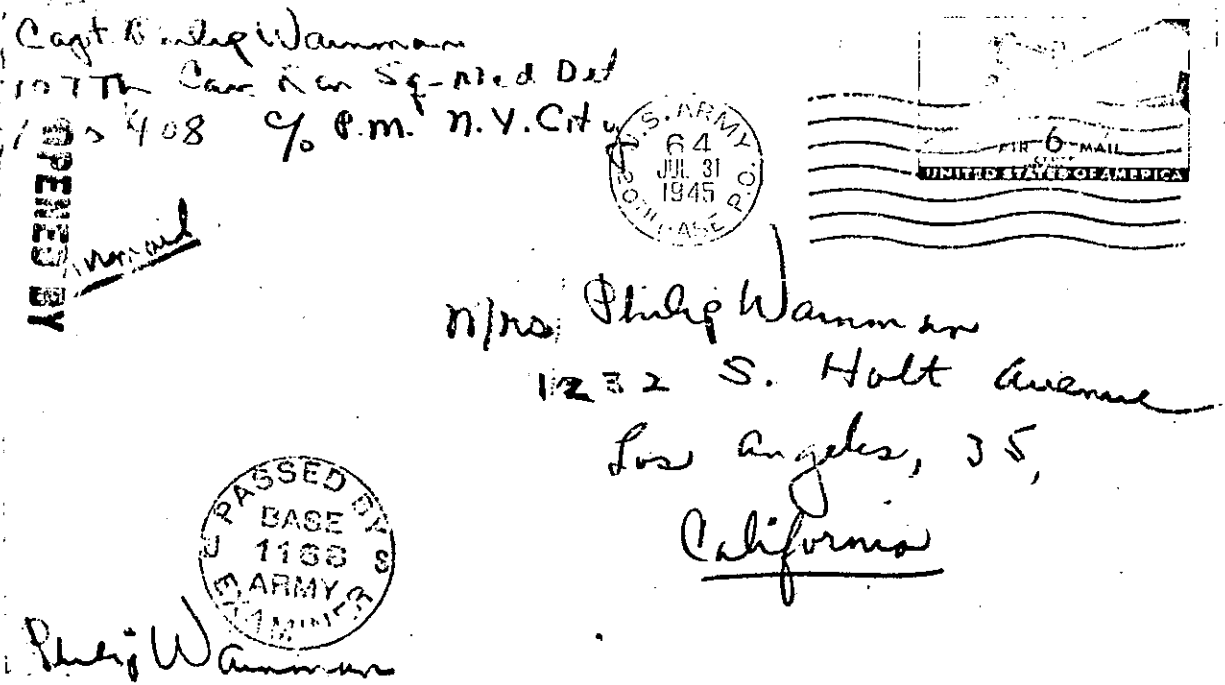 Capt Philip Wainman
107Th Cav Rcn Sq-Med Det
408 c/o P.M. N.Y. City
OPENED BY
U.S. ARMY
64
JUL 31
1945
BASE P.O.
AIR 6¢ MAIL
UNITED STATES OF AMERICA
Mrs Philip Wainman
1232 S. Holt Avenue
Los Angeles, 35,
California
PASSED BY
BASE
1188
ARMY
EXAMINER
Philip Wainman